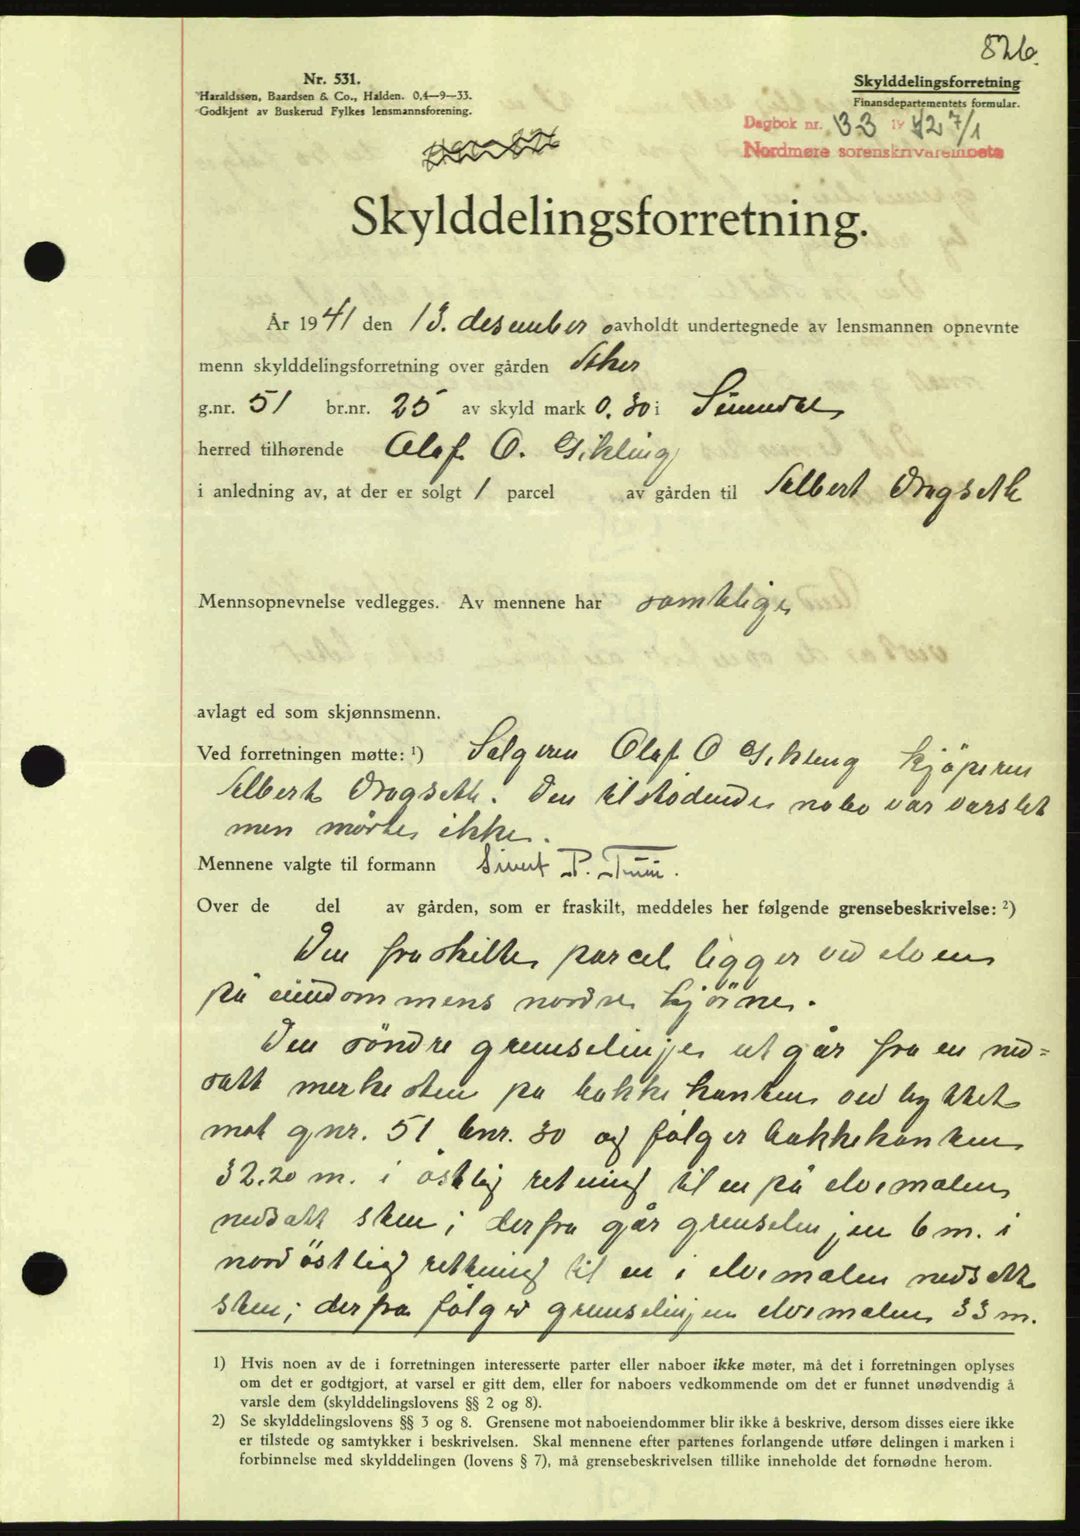 826.
Nr. 531.
Haraldssøn, Baardsen & Co., Halden. 0,4—9—33.
Godkjent av Buskerud Fylkes lensmannsforening.
Skylddelingsforretning
Finansdepartementets formular.
Dagbok nr. 33 1942 7/1
Nordmøre sorenskriverembete
Skylddelingsforretning.
År 1941 den 13. desember avholdt undertegnede av lensmannen opnevnte
menn skylddelingsforretning over gården
g.nr. 51 br.nr. 25 av skyld mark 0.30 i Sunndal
herred tilhørende Olaf O. Gikling
i anledning av, at der er solgt 1 parcel av gården til Albert Dragseth
Mennsopnevnelse vedlegges. Av mennene har samtlige
avlagt ed som skjønnsmenn.
Ved forretningen møtte: ¹) Selgeren Olaf O Gikling kjöperen
Albert Dragseth. Den tilstödende nabo var varslet
men mørte ikke.
Mennene valgte til formann Sivert P.
Over de del av gården, som er fraskilt, meddeles her følgende grensebeskrivelse: ²)
Den fraskilte parcel ligger ved elven
på eiendommens nordre hjörne.
Den söndre grenselinje utgår fra en ned=
satt merkesten på bakkekanten ved byttet
mot gnr. 51 bnr. 30 og fölger bakkekanten
32.20 m. i östlig retning til en på elvemælen
nedsatt sten; derfra går grenselinjen 6 m. i
nordöstlig retning til en i elvemælen nedsatt
sten; derfra fölger grenselinjen elvemælen 33 m.
1) Hvis noen av de i forretningen interesserte parter eller naboer ikke møter, må det i forretningen oplyses
om det er godtgjort, at varsel er gitt dem, eller for naboers vedkommende om det er funnet unødvendig å
varsle dem (skylddelingslovens §§ 2 og 8).
2) Se skylddelingslovens §§ 3 og 8. Grensene mot naboeiendommer blir ikke å beskrive, dersom disses eiere ikke
er tilstede og samtykker i beskrivelsen. Skal mennene efter partenes forlangende utføre delingen i marken i
forbinnelse med skylddelingen (lovens § 7), må grensebeskrivelsen tillike inneholde det fornødne herom.